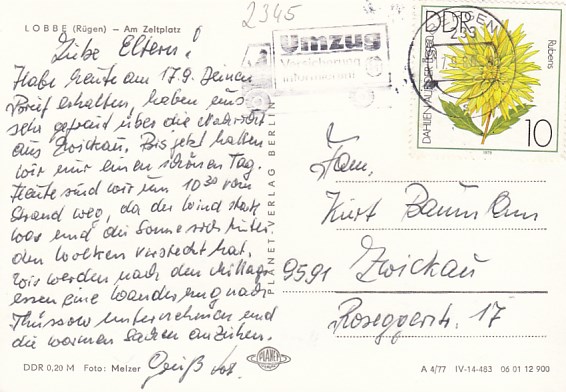 LOBBE (Rügen) — Am Zeltplatz
2345
Liebe Eltern!
Habe heute am 17.9. Deinen
Brief erhalten, haben uns
sehr gefreut über die Nachricht
aus Zwickau. Bis jetzt hatten
wir nur einen schönen Tag.
Heute sind wir um 10³⁰ vom
Strand weg, da der Wind stark
war und die Sonne sich hinter
den Wolken versteckt hat.
Wir werden nach dem Mittag-
essen eine Wanderung nach
Thiessow unternehmen und
die warmen Sachen anziehen.
Gruß
DDR 0,20 M Foto: Melzer
PLANET
PLANET-VERLAG BERLIN
Umzug
Versicherung
informieren!
DDR
DAHLIEN AUF DER
Rubens
10
1979
Fam.
Kurt Baumann
9591 Zwickau
Roseggerstr. 17
A 4/77 IV-14-483 06 01 12 900